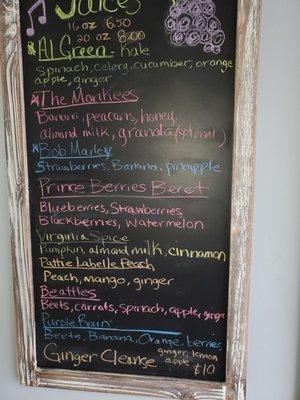 Juices
16 oz 6.50
20 oz 8.00
Al Green - kale
Spinach, celery, cucumber, orange
apple, ginger
The Monkees
Banana, peacans, honey,
almond milk, granola (optional)
Bob Marley
Strawberries, Banana, pineapple
Prince Berries Beret
Blueberries, Strawberries
Blackberries, Watermelon
Virginia Spice
Pumpkin, almond milk, cinnamon
Pattie Labelle Peach
Peach, mango, ginger
Beattles
Beets, carrots, spinach, apple, ginger
Purple Rain
Beets, Banana, Orange, berries
Ginger Cleanse ginger, lemon
apple $10